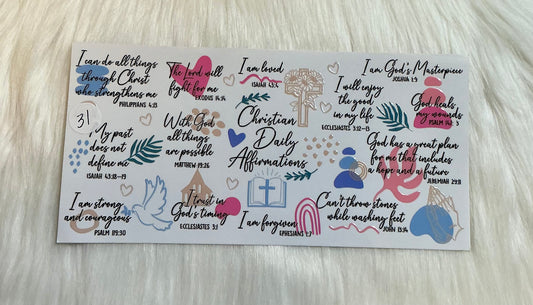 I can do all things
through Christ
who strengthens me
PHILIPPIANS 4:13
The Lord will
fight for me
EXODUS 14:14
I am loved
ISAIAH 43:4
I am God's Masterpiece
JOSHUA 1:9
I will enjoy
the good
in my life
ECCLESIASTES 3:12-13
God heals
my wounds
PSALM
31
My past
does not
define me
ISAIAH 43:18-19
With God
all things
are possible
MATTHEW 19:26
Christian
Daily
Affirmations
God has a great plan
for me that includes
a hope and a future
JEREMIAH 29:11
I am strong
and courageous
PSALM 119:30
I trust in
God's timing
ECCLESIASTES 3:1
I am forgiven
EPHESIANS 1:7
Can't throw stones
while washing feet
JOHN 13:14